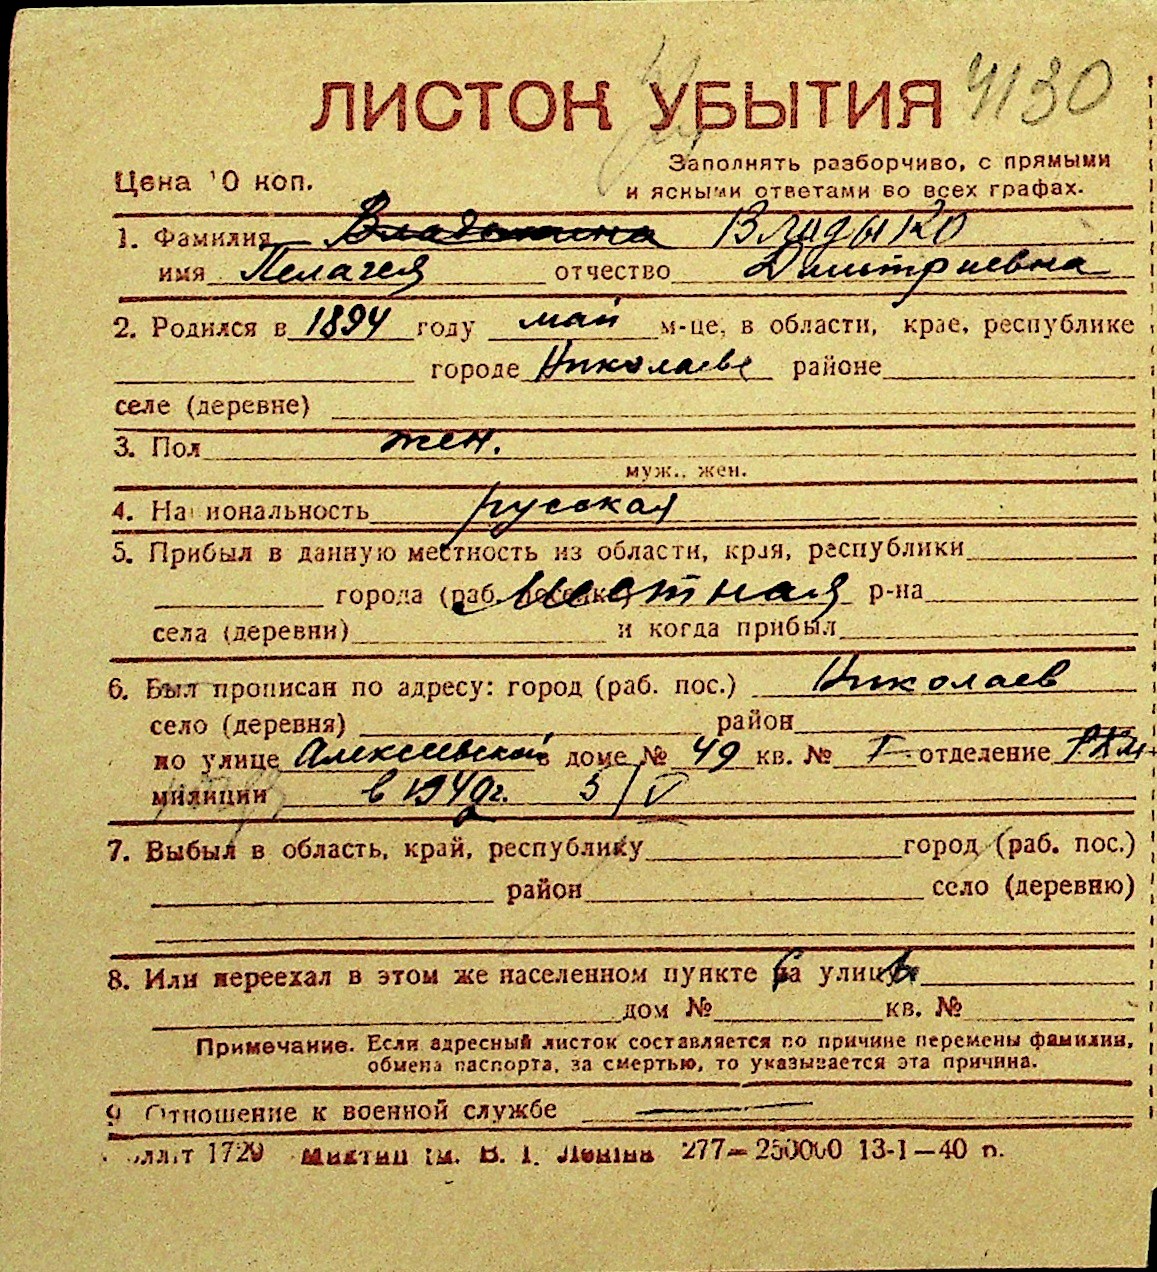 ЛИСТОК УБЫТИЯ 4130
Цена 10 коп.
Заполнять разборчиво, с прямыми
и ясными ответами во всех графах.
1. Фамилия Владыкина Владыко
имя Пелагея отчество Димитриевна
2. Родился в 1894 году май м-це, в области, крае, республике
городе Николаеве районе
селе (деревне)
3. Пол жен.
муж., жен.
4. Национальность русская
5. Прибыл в данную местность из области, края, республики
города (раб. поселка) Местная р-на
села (деревни) и когда прибыл
6. Был прописан по адресу: город (раб. пос.) Николаев
село (деревня) район
по улице Алексеевской в доме № 49 кв. № I отделение РКМ
милиции в 1940г. 3/V
7. Выбыл в область, край, республику город (раб. пос.)
район село (деревню)
8. Или переехал в этом же населенном пункте на улицу
дом № кв. №
Примечание. Если адресный листок составляется по причине перемены фамилии,
обмена паспорта, за смертью, то указывается эта причина.
9 Отношение к военной службе —
1729 им. В. І. Леніна 277—250000 13-I—40 р.